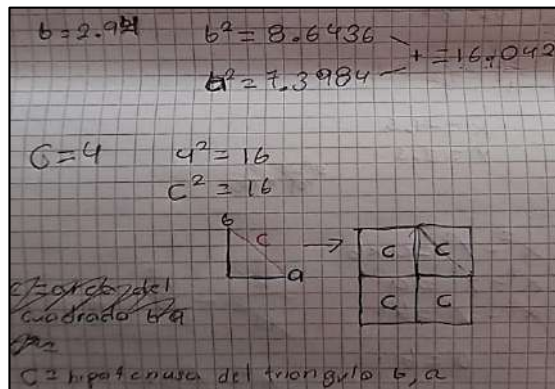 b = 2.94 b² = 8.6436
a² = 7.3984 + = 16.042
C = 4 4² = 16
C² = 16
b
c
a
c c
c c
del
cuadrado b a
C = hipotenusa del triangulo b, a